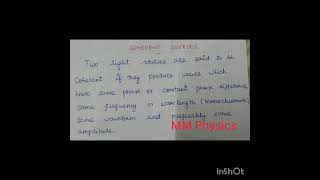 COHERENT SOURCES
Two light sources are said to be
Coherent if they produce waves which
have same phase or constant phase difference,
same frequency or wavelength (monochromatic),
same waveform and preferably same
amplitude.
MM Physics
InShOt